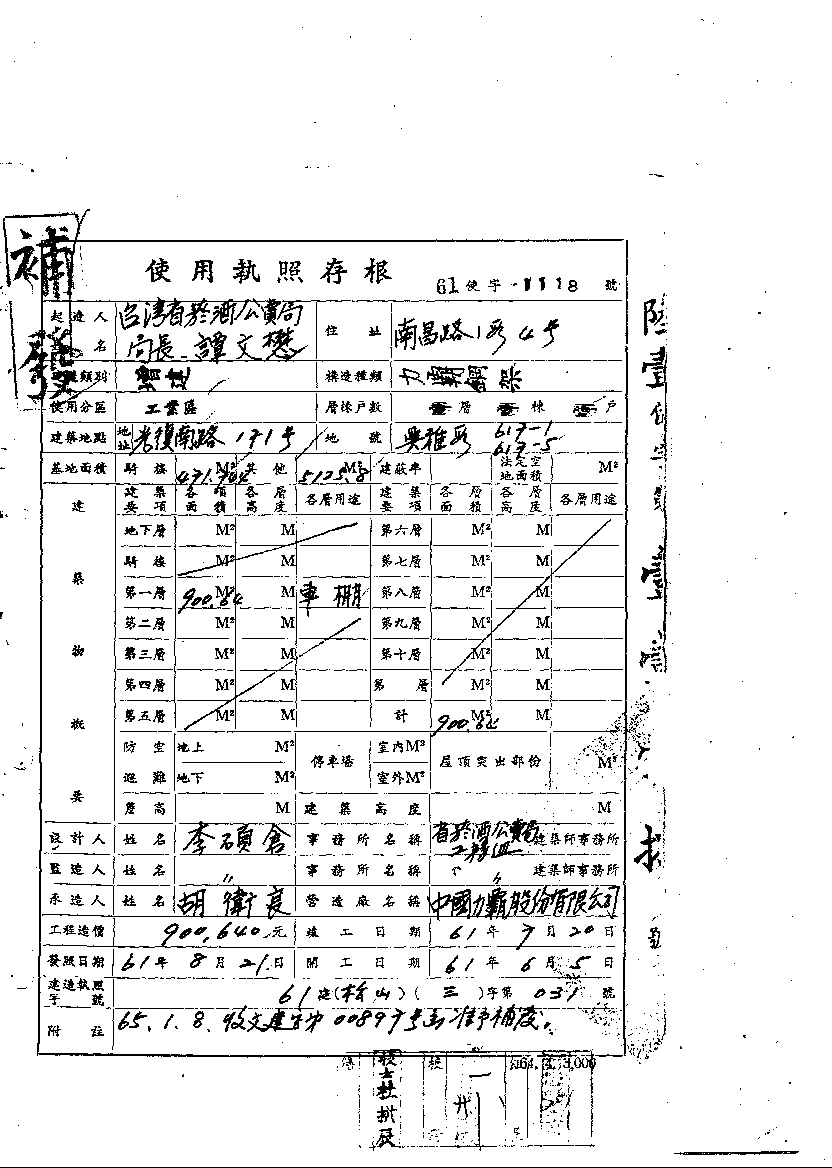 補發
使用執照存根
61使字-1118號
起造人 台湾省菸酒公賣局
姓名 局長 譚文懋 住址 南昌路1段4号
類別 增建 構造種類 力霸鋼架
使用分區 工業區 層棟戶數 壹層 壹棟 壹戶
建築地點 地址 光復南路171号 地號 興雅段 617-1 617-5
基地面積 騎樓 M² 其他 5125.8M² 建蔽率 法定空地面積 M²
建築物概要
建築要項 各項面積 各層高度 各層用途 建築要項 各層面積 各層高度 各層用途
地下層 M² M 第六層 M² M
騎樓 M² M 第七層 M² M
第一層 900.64M² M 車棚 第八層 M² M
第二層 M² M 第九層 M² M
第三層 M² M 第十層 M² M
第四層 M² M 第 層 M² M
第五層 M² M 計 900.64M² M
防空避難 地上 M² 停車場 室內M² 屋頂突出部份 M²
地下 M² 室外M²
簷高 M 建築高度 M
設計人 姓名 李碩倉 事務所名稱 省菸酒公賣局 建築師事務所
監造人 姓名 〃 事務所名稱 〃 建築師事務所
承造人 姓名 胡衛良 營造廠名稱 中國力霸股份有限公司
工程造價 900,640元 竣工日期 61年7月20日
發照日期 61年8月21日 開工日期 61年6月5日
建造執照字號 61建(松山)(三)字第031號
附註 65.1.8.收文建字第00897号函准予補發。
校